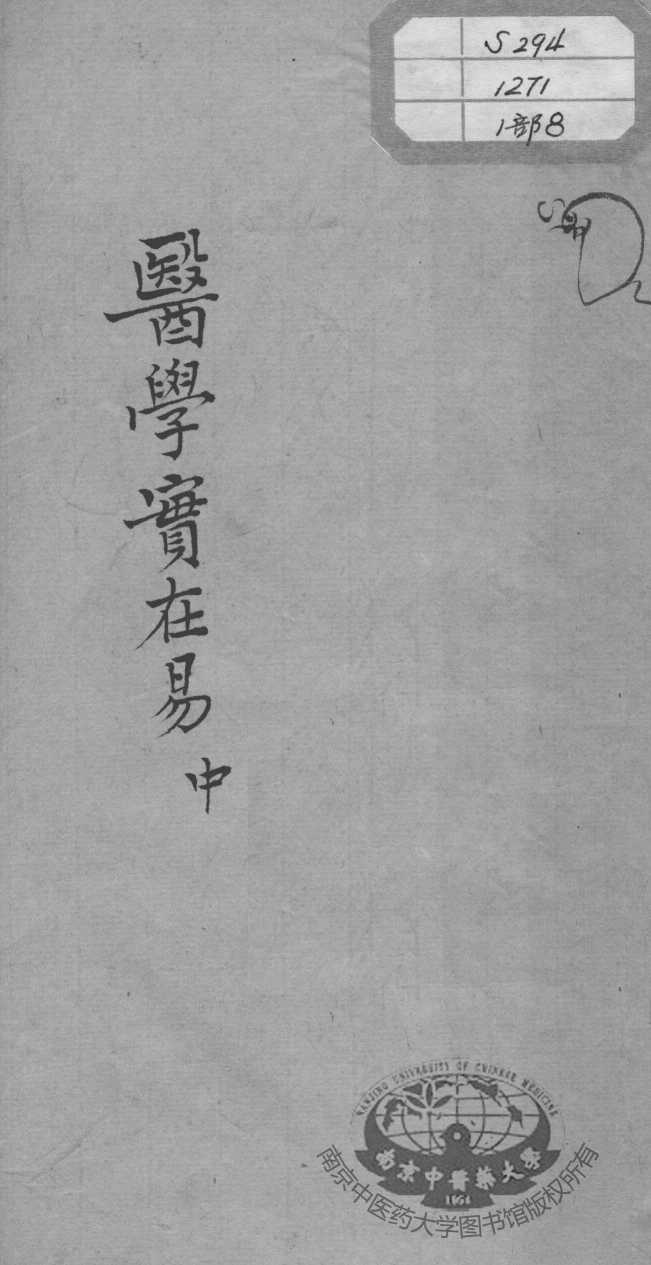 S294
1271
1部8
醫學實在易
中
NANJING UNIVERSITY OF CHINESE MEDICINE
南京中醫藥大學
1954
南京中医药大学图书馆版权所有